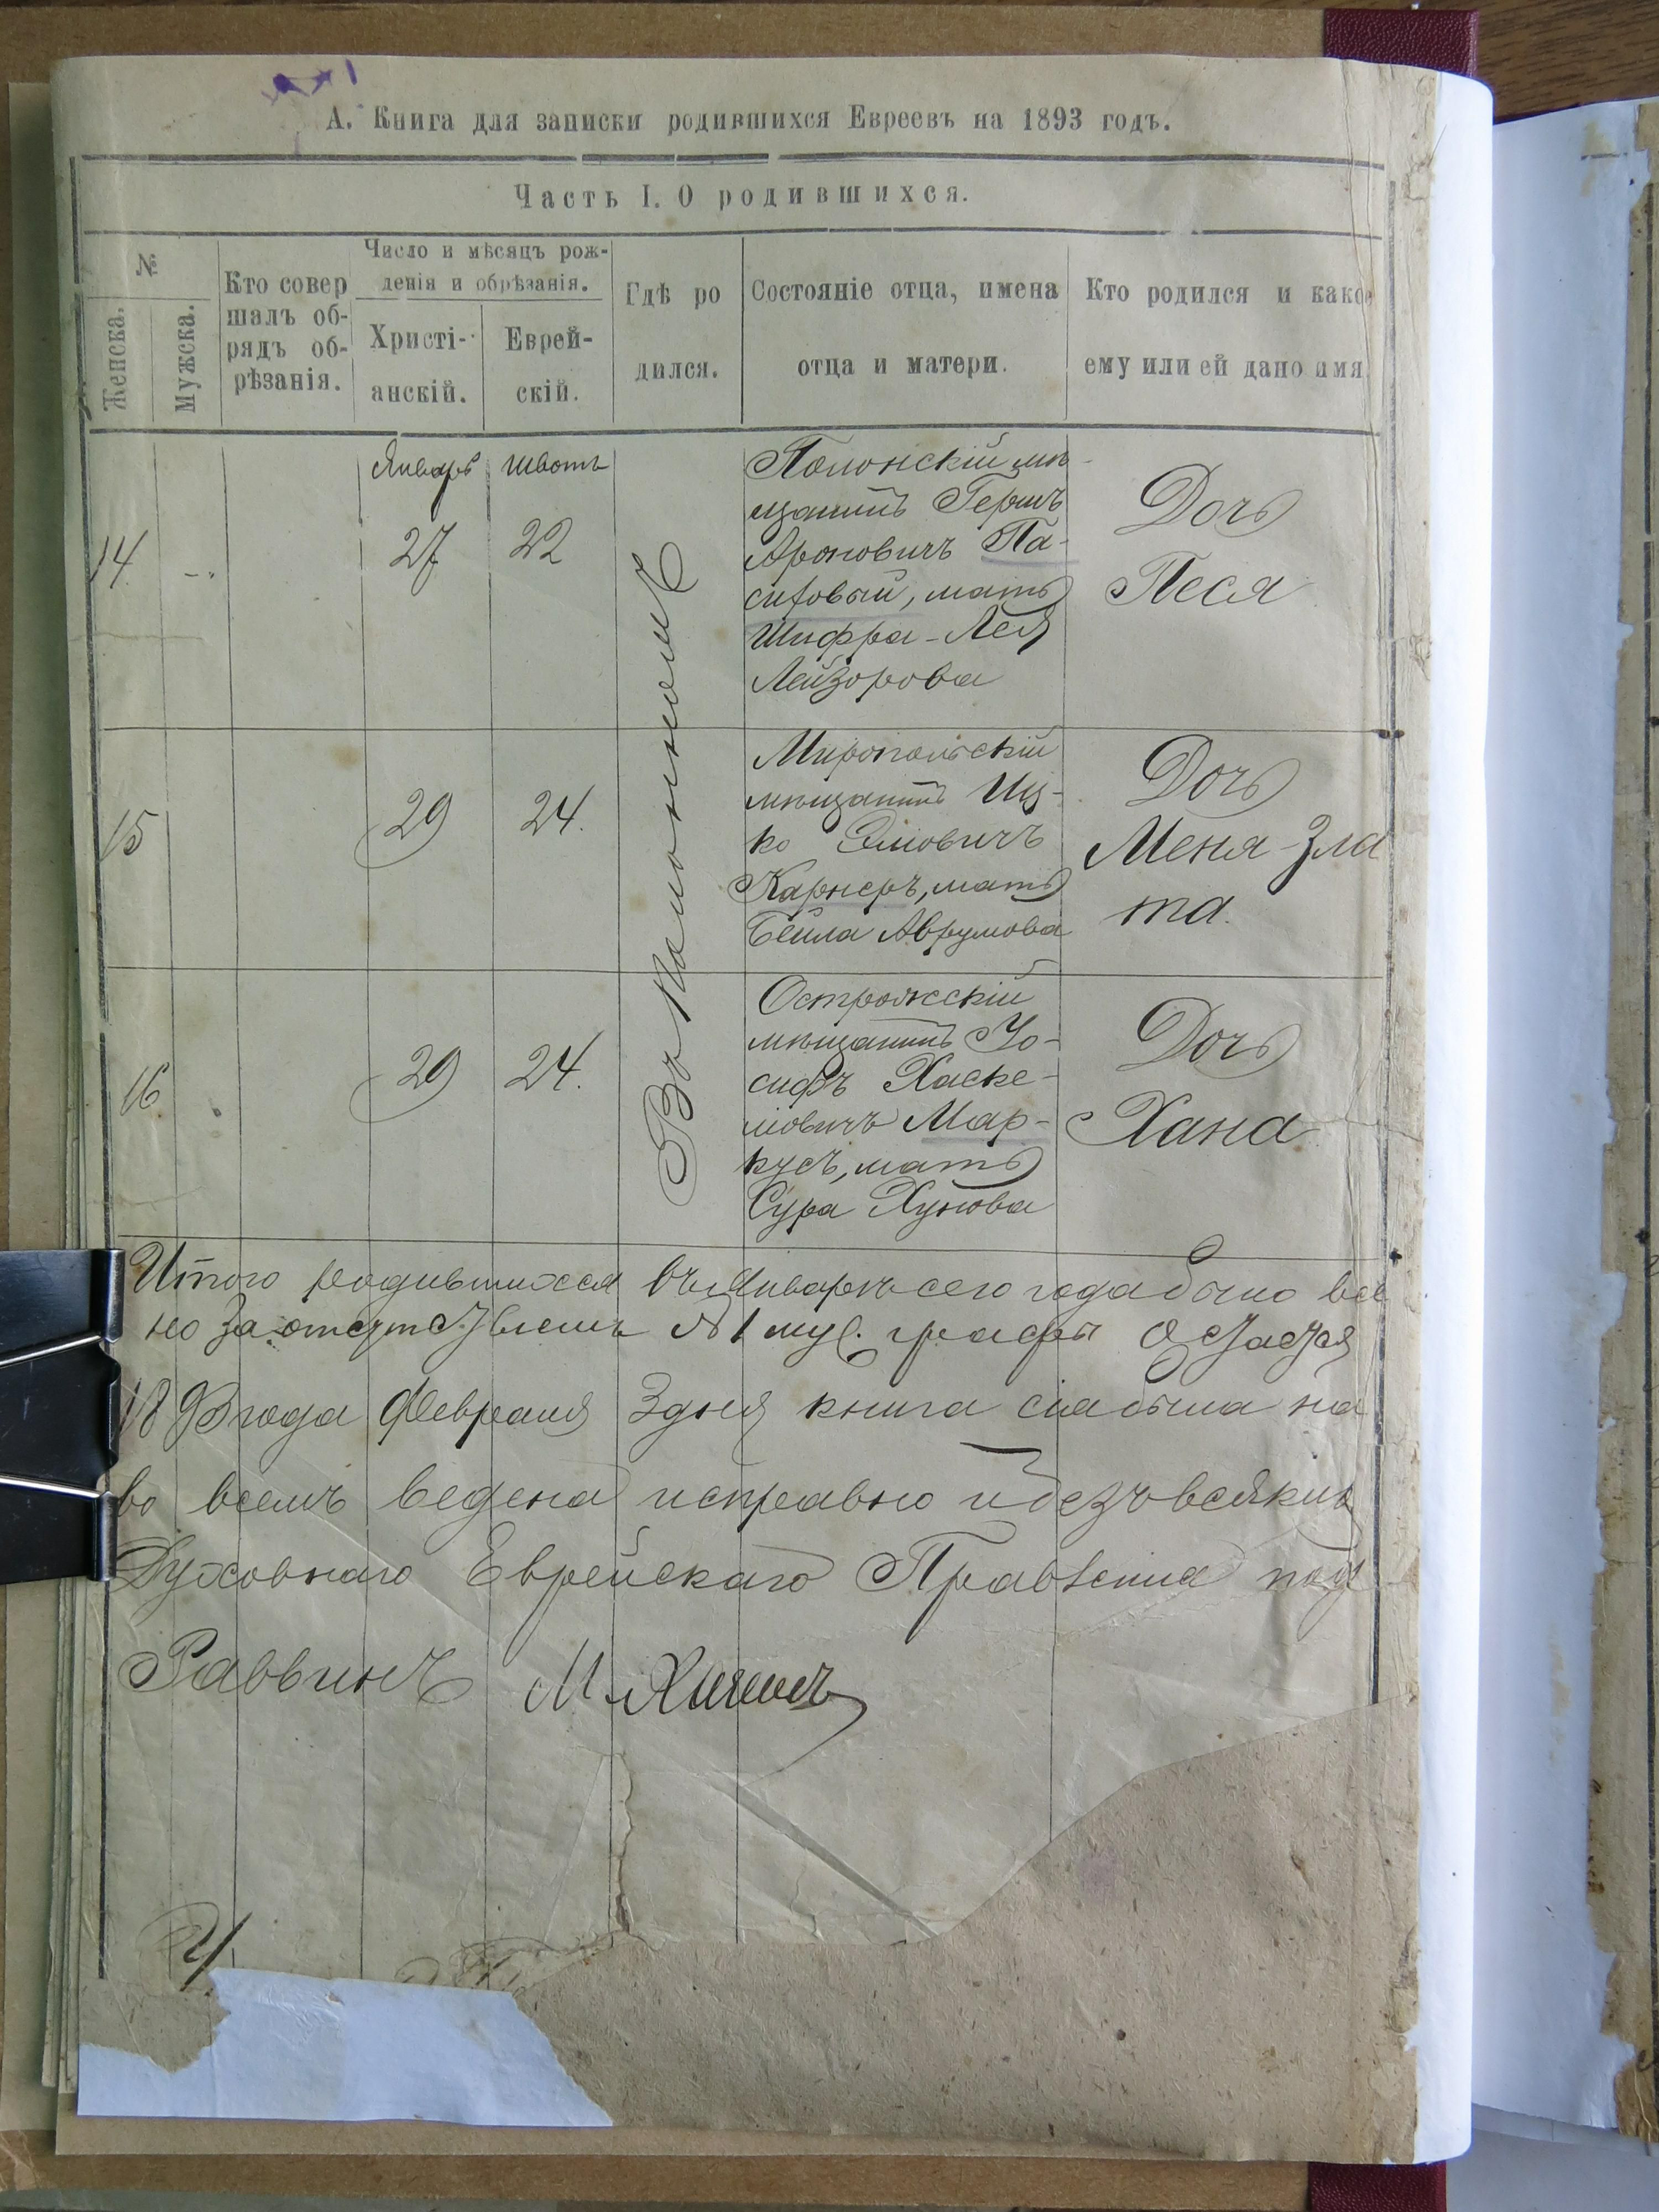 А. Книга для записки родившихся Евреевъ на 1893 годъ.
Часть I. О родившихся.
№
Женска.
Мужска.
Кто совер
шалъ об-
рядъ об-
рѣзанія.
Число и мѣсяцъ рож-
денія и обрѣзанія.
Христі-
анскій.
Еврей-
скій.
Гдѣ ро
дился.
Состояніе отца, имена
отца и матери.
Кто родился и како
ему или ей дано имя
14
Январь
27
Шватъ
22
Въ Полонномъ
Полонскій мѣ-
щанинъ Гершъ
Ароновичъ Па-
ситовый, мать
Шифра-Лея
Лейзорова
Дочь
Песя
15
29
24.
Миропольскій
мѣщанинъ Иц-
ко Элиовичъ
Карнеръ, мать
Бейла Аврумова
Дочь
Меня-Зла
та.
16
29
24.
Острожскій
мѣщанинъ Іо-
сифъ Хаске-
левичъ Мар-
кусъ, мать
Сура Хунова
Дочь
Хана
Итого родившихся въ Январѣ сего года было все
но за отсутствіемъ № 1 муж. графы остается
1893 года Февраля 3 дня книга сія была на
во всемъ ведена исправно и безъ всякихъ
Духовнаго Еврейскаго Правленія под
Раввинъ М.